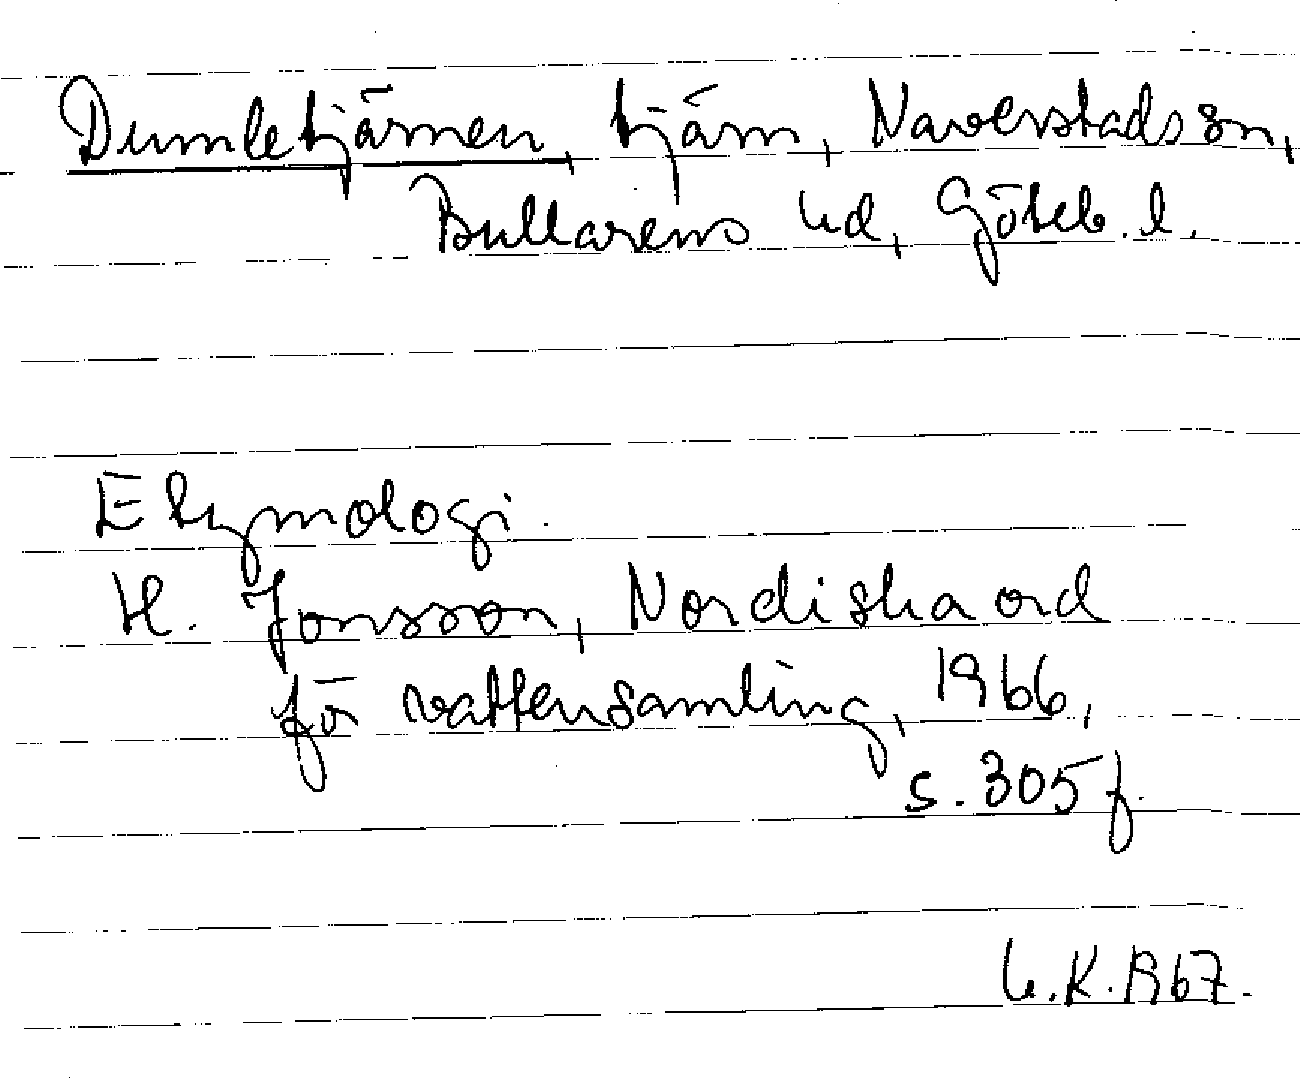 Dumletjärnen, tjärn, Naverstads sn,
Bullarens hd, Göteb. l.
Etymologi.
H. Jonsson, Nordiska ord
för vattensamling, 1966,
s. 305 f.
G.K. 1967.